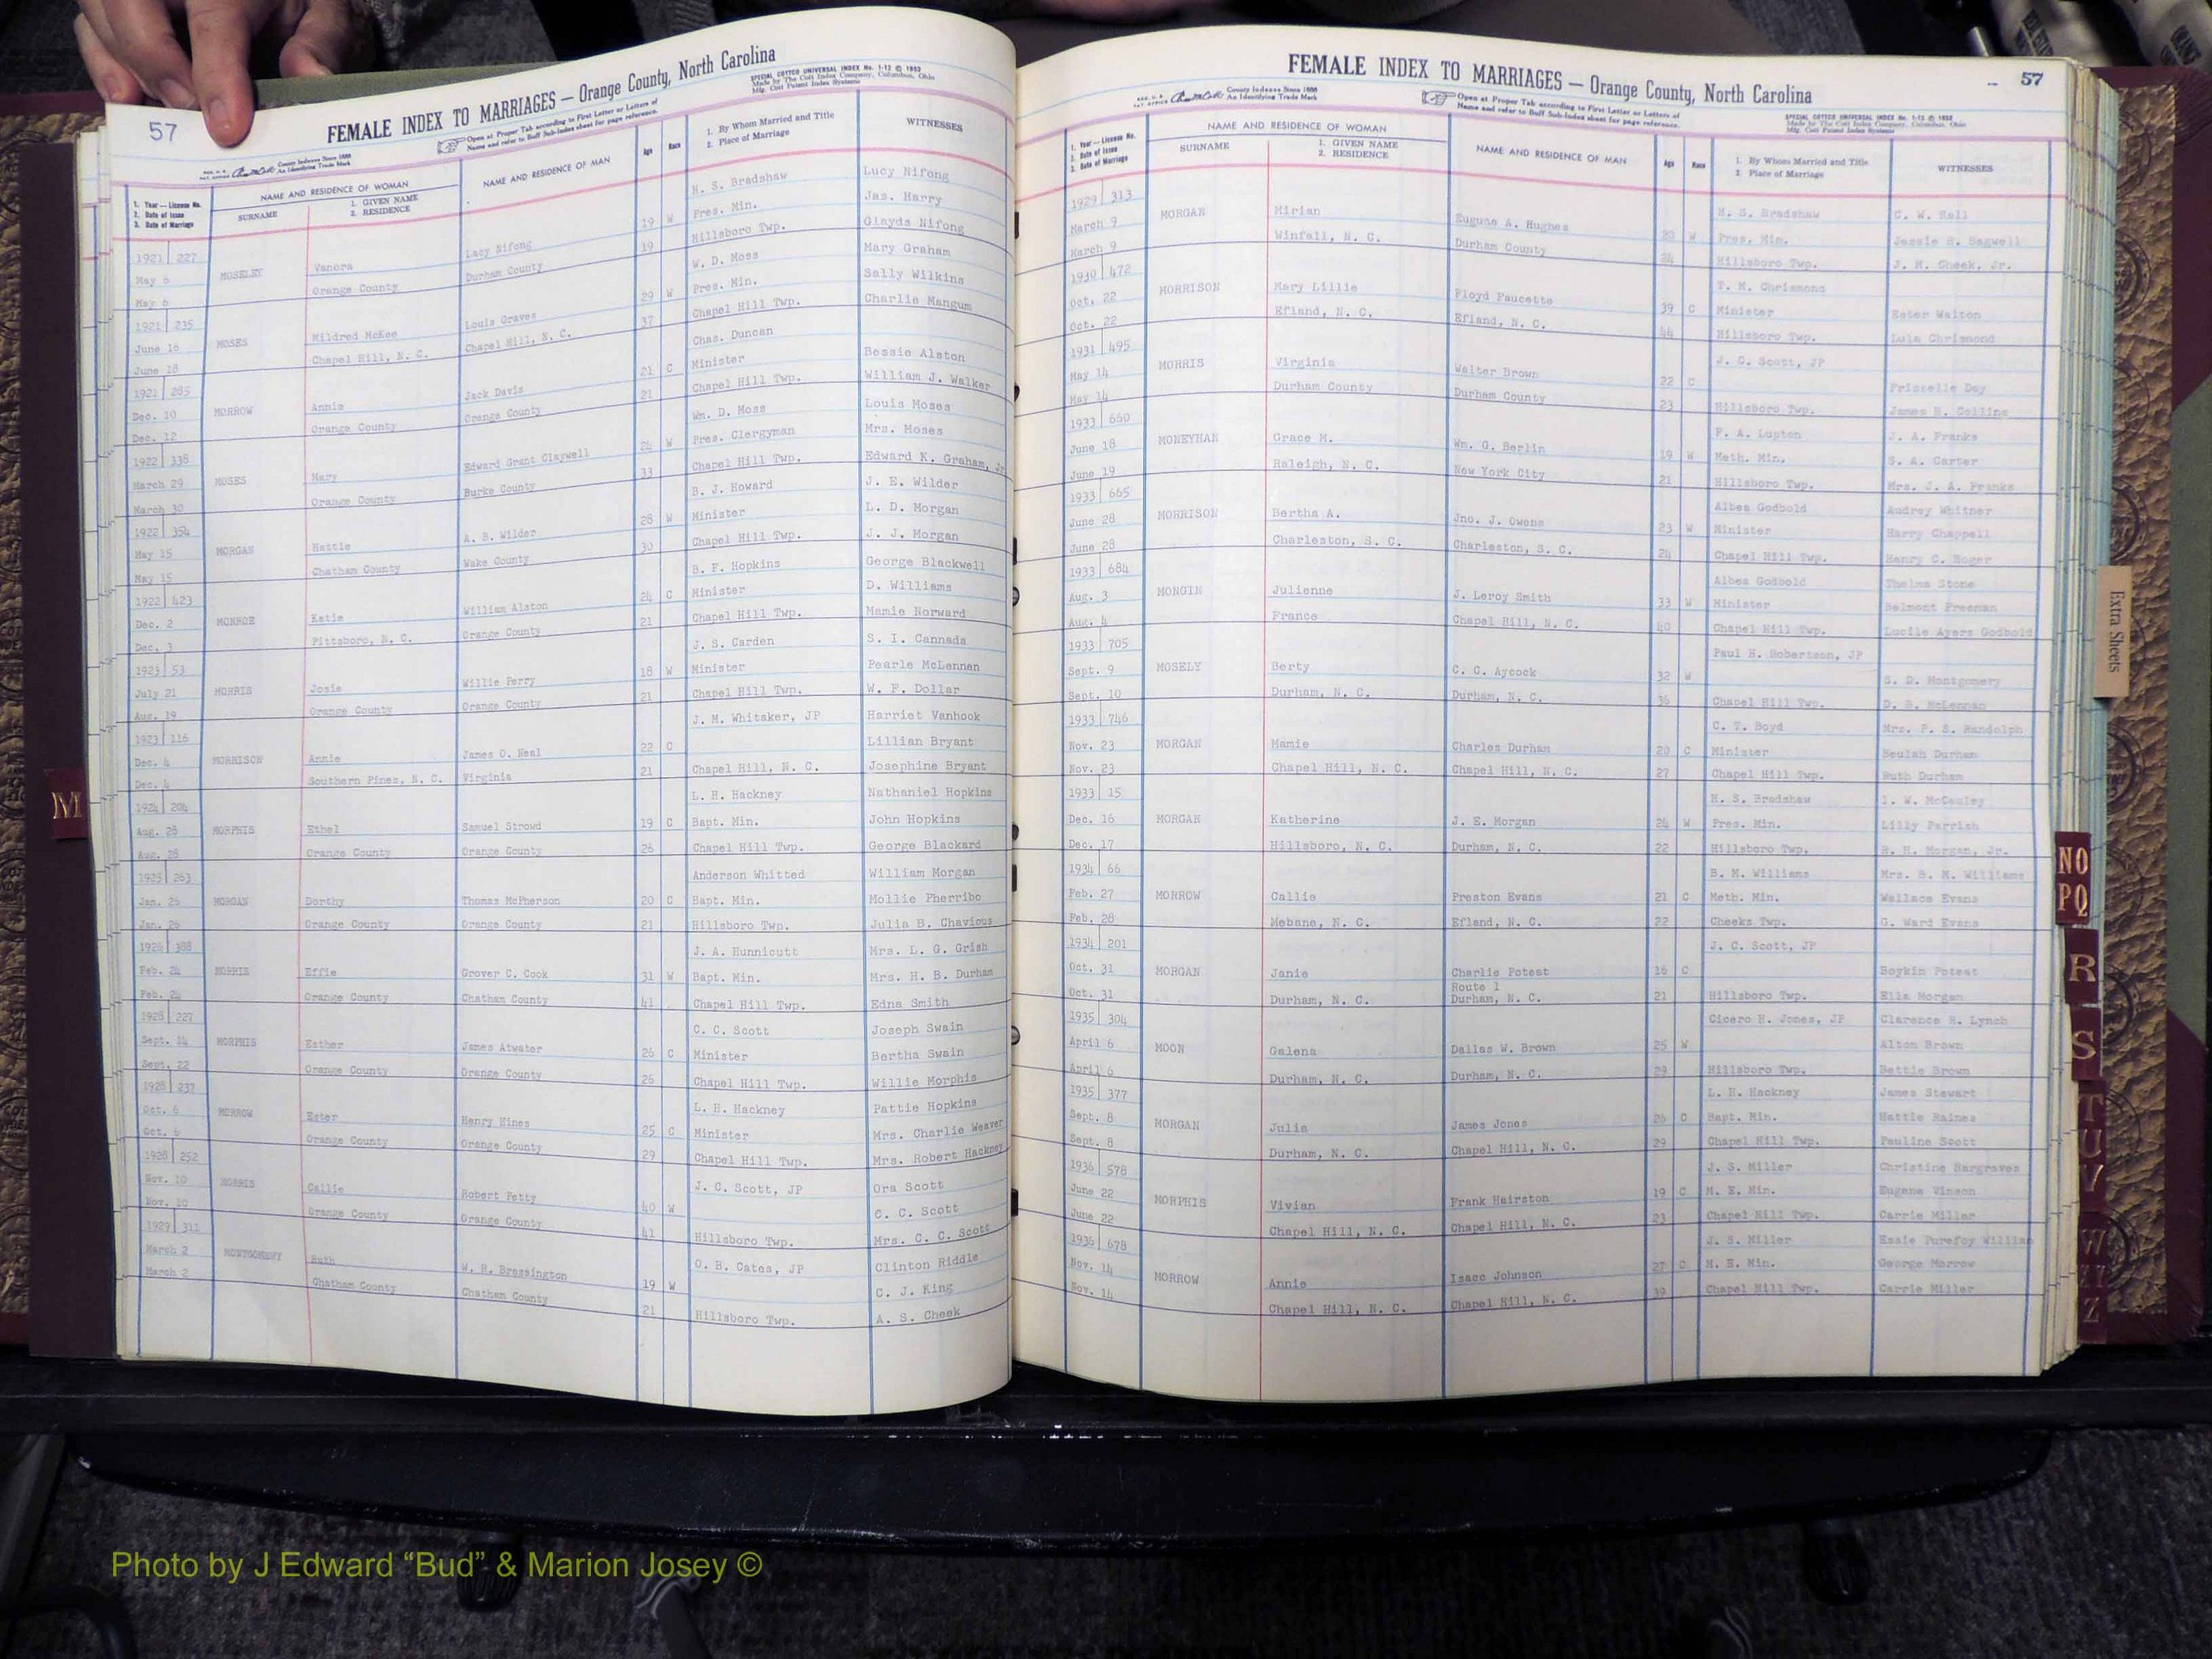 57
FEMALE INDEX TO MARRIAGES — Orange County, North Carolina
SPECIAL COTTCO UNIVERSAL INDEX No. 1-12 © 1953
Made by The Cott Index Company, Columbus, Ohio
Mfg. Cott Patent Index Systems
County Indexes Since 1888
An Identifying Trade Mark
Open at Proper Tab according to First Letter or Letters of
Name and refer to Buff Sub-Index sheet for page reference.
1. Year — License No.
2. Date of Issue
3. Date of Marriage
NAME AND RESIDENCE OF WOMAN
SURNAME
1. GIVEN NAME
2. RESIDENCE
NAME AND RESIDENCE OF MAN
Age
Race
1. By Whom Married and Title
2. Place of Marriage
WITNESSES
1921 227 H. S. Bradshaw Lucy Nifong
May 6 MOSELEY Vanora Lacy Nifong 19 W Pres. Min. Jas. Harry
May 6 Orange County Durham County 19 Hillsboro Twp. Glayds Nifong
1921 235 W. D. Moss Mary Graham
June 16 MOSES Mildred McKee Louis Graves 29 W Pres. Min. Sally Wilkins
June 18 Chapel Hill, N. C. Chapel Hill, N. C. 37 Chapel Hill Twp. Charlie Mangum
1921 285 Chas. Duncan
Dec. 10 MORROW Annie Jack Davis 21 C Minister Bessie Alston
Dec. 12 Orange County Orange County 21 Chapel Hill Twp. William J. Walker
1922 338 Wm. D. Moss Louis Moses
March 29 MOSES Mary Edward Grant Claywell 24 W Pres. Clergyman Mrs. Moses
March 30 Orange County Burke County 33 Chapel Hill Twp. Edward K. Graham, Jr
1922 354 B. J. Howard J. E. Wilder
May 15 MORGAN Hattie A. B. Wilder 28 W Minister L. D. Morgan
May 15 Chatham County Wake County 30 Chapel Hill Twp. J. J. Morgan
1922 423 B. F. Hopkins George Blackwell
Dec. 2 MONROE Katie William Alston 24 C Minister D. Williams
Dec. 3 Pittsboro, N. C. Orange County 21 Chapel Hill Twp. Mamie Norward
1923 53 J. S. Carden S. I. Cannada
July 21 MORRIS Josie Willie Perry 18 W Minister Pearle McLennen
Aug. 19 Orange County Orange County 21 Chapel Hill Twp. W. F. Dollar
1923 116 J. M. Whitaker, JP Harriet Vanhook
Dec. 4 MORRISON Annie James O. Neal 22 C Lillian Bryant
Dec. 4 Southern Pines, N. C. Virginia 21 Chapel Hill, N. C. Josephine Bryant
1924 204 L. H. Hackney Nathaniel Hopkins
Aug. 28 MORPHIS Ethel Samuel Strowd 19 C Bapt. Min. John Hopkins
Aug. 28 Orange County Orange County 26 Chapel Hill Twp. George Blackard
1925 263 Anderson Whitted William Morgan
Jan. 26 MORGAN Dorthy Thomas McPherson 20 C Bapt. Min. Mollie Pherribo
Jan. 26 Orange County Orange County 21 Hillsboro Twp. Julia B. Chavious
1926 388 J. A. Hunnicutt Mrs. L. G. Grish
Feb. 24 MORRIS Effie Grover C. Cook 31 W Bapt. Min. Mrs. H. B. Durham
Feb. 24 Orange County Chatham County 41 Chapel Hill Twp. Edna Smith
1928 227 C. C. Scott Joseph Swain
Sept. 14 MORPHIS Esther James Atwater 26 C Minister Bertha Swain
Sept. 22 Orange County Orange County 26 Chapel Hill Twp. Willie Morphis
1928 237 L. H. Hackney Pattie Hopkins
Oct. 6 MORROW Ester Henry Hines 25 C Minister Mrs. Charlie Weaver
Oct. 6 Orange County Orange County 29 Chapel Hill Twp. Mrs. Robert Hackney
1928 252 J. C. Scott, JP Ora Scott
Nov. 10 MORRIS Callie Robert Petty 40 W C. C. Scott
Nov. 10 Orange County Orange County 41 Hillsboro Twp. Mrs. C. C. Scott
1929 311 O. B. Cates, JP Clinton Riddle
March 2 MONTGOMERY Ruth W. R. Brassington 19 W C. J. King
March 2 Chatham County Chatham County 21 Hillsboro Twp. A. S. Cheek
57
FEMALE INDEX TO MARRIAGES — Orange County, North Carolina
County Indexes Since 1888
An Identifying Trade Mark
Open at Proper Tab according to First Letter or Letters of
Name and refer to Buff Sub-Index sheet for page reference.
SPECIAL COTTCO UNIVERSAL INDEX No. 1-12 © 1953
Made by The Cott Index Company, Columbus, Ohio
Mfg. Cott Patent Index Systems
1. Year — License No.
2. Date of Issue
3. Date of Marriage
NAME AND RESIDENCE OF WOMAN
SURNAME
1. GIVEN NAME
2. RESIDENCE
NAME AND RESIDENCE OF MAN
Age
Race
1. By Whom Married and Title
2. Place of Marriage
WITNESSES
1929 313 H. S. Bradshaw C. W. Hall
March 9 MORGAN Mirian Eugune A. Hughes 20 W Pres. Min. Jessie H. Bagwell
March 9 Winfall, N. C. Durham County 24 Hillsboro Twp. J. M. Cheek, Jr.
1930 472 T. M. Chrismond
Oct. 22 MORRISON Mary Lillie Floyd Faucette 39 C Minister Ester Walton
Oct. 22 Efland, N. C. Efland, N. C. 44 Hillsboro Twp. Lula Chrismond
1931 495 J. C. Scott, JP
May 14 MORRIS Virginia Walter Brown 22 C Frizzelle Day
May 14 Durham County Durham County 23 Hillsboro Twp. James H. Collins
1933 660 F. A. Lupton J. A. Franks
June 18 MONEYHAN Grace M. Wm. G. Berlin 19 W Meth. Min. S. A. Carter
June 19 Raleigh, N. C. New York City 21 Hillsboro Twp. Mrs. J. A. Franks
1933 665 Albea Godbold Audrey Whitner
June 28 MORRISON Bertha A. Jno. J. Owens 23 W Minister Harry Chappell
June 28 Charleston, S. C. Charleston, S. C. 24 Chapel Hill Twp. Henry C. Hoger
1933 684 Albea Godbold Thelma Stone
Aug. 3 MONGIN Julienne J. Leroy Smith 33 W Minister Belmont Freeman
Aug. 4 France Chapel Hill, N. C. 40 Chapel Hill Twp. Lucile Ayers Godbold
1933 705 Paul H. Robertson, JP
Sept. 9 MOSELY Berty C. C. Aycock 32 W S. D. Montgomery
Sept. 10 Durham, N. C. Durham, N. C. 36 Chapel Hill Twp. D. B. McLennan
1933 746 C. T. Boyd Mrs. P. S. Randolph
Nov. 23 MORGAN Mamie Charles Durham 20 C Minister Beulah Durham
Nov. 23 Chapel Hill, N. C. Chapel Hill, N. C. 27 Chapel Hill Twp. Ruth Durham
1933 15 H. S. Bradshaw I. W. McCauley
Dec. 16 MORGAN Katherine J. E. Morgan 24 W Pres. Min. Lilly Parrish
Dec. 17 Hillsboro, N. C. Durham, N. C. 22 Hillsboro Twp. R. H. Morgan, Jr.
1934 66 B. M. Williams Mrs. B. M. Williams
Feb. 27 MORROW Callie Preston Evans 21 C Meth. Min. Wallace Evans
Feb. 28 Mebane, N. C. Efland, N. C. 22 Cheeks Twp. G. Ward Evans
1934 201 J. C. Scott, JP
Oct. 31 MORGAN Janie Charlie Poteat 16 C Boykin Poteat
Route 1
Oct. 31 Durham, N. C. Durham, N. C. 21 Hillsboro Twp. Ella Morgan
1935 304 Cicero H. Jones, JP Clarence R. Lynch
April 6 MOON Galena Dallas W. Brown 25 W Alton Brown
April 6 Durham, N. C. Durham, N. C. 29 Hillsboro Twp. Bettie Brown
1935 377 L. H. Hackney James Stewart
Sept. 8 MORGAN Julia James Jones 26 C Bapt. Min. Hattie Raines
Sept. 8 Durham, N. C. Chapel Hill, N. C. 29 Chapel Hill Twp. Pauline Scott
1936 578 J. S. Miller Christine Hargraves
June 22 MORPHIS Vivian Frank Hairston 19 C M. E. Min. Eugene Vinson
June 22 Chapel Hill, N. C. Chapel Hill, N. C. 23 Chapel Hill Twp. Carrie Miller
1936 678 J. S. Miller Essie Purefoy William
Nov. 14 MORROW Annie Isacc Johnson 27 C M. E. Min. George Morrow
Nov. 14 Chapel Hill, N. C. Chapel Hill, N. C. 39 Chapel Hill Twp. Carrie Miller
M
Extra Sheets
NO
PQ
R
S
T
U
V
W
Z
Photo by J Edward “Bud” & Marion Josey ©